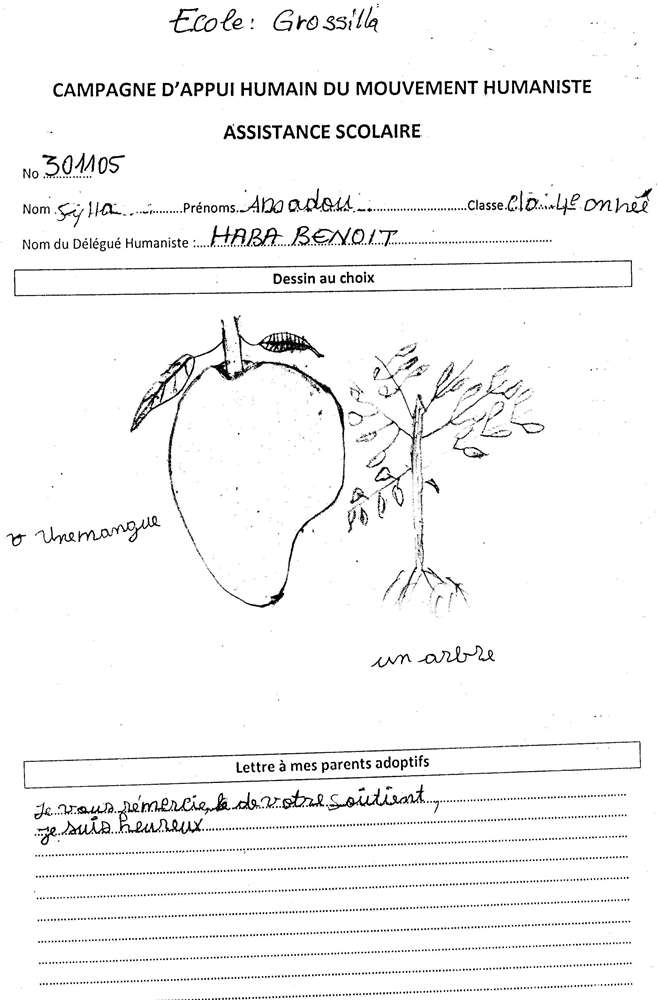 Ecole: Grossilla
CAMPAGNE D'APPUI HUMAIN DU MOUVEMENT HUMANISTE
ASSISTANCE SCOLAIRE
No 301105
Nom Sylla Prénoms Amadou Classe Cla 4e année
Nom du Délégué Humaniste : HABA BENOIT
Dessin au choix
Unemangue
un arbre
Lettre à mes parents adoptifs
Je vous rémercie, de votre soûtient,
je suis heureux